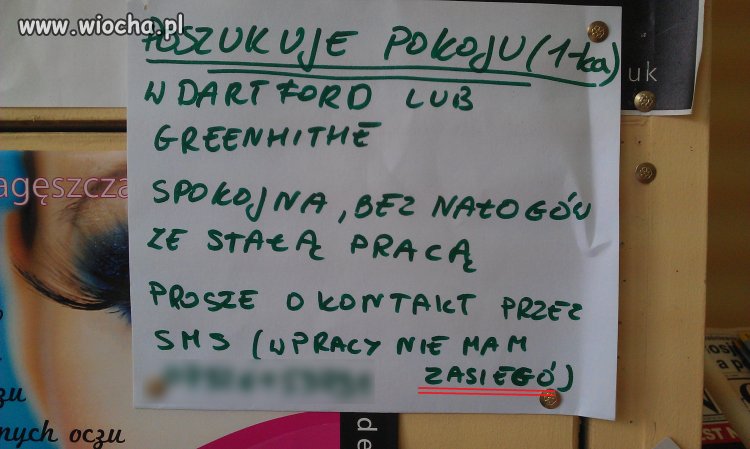 www.wiocha.pl
POSZUKUJE POKOJU (1-ka)
W DARTFORD LUB
GREENHITHE
SPOKOJNA, BEZ NAŁOGÓW
ZE STAŁĄ PRACĄ
PROSZE O KONTAKT PRZEZ
SMS (W PRACY NIE MAM
ZASIEGÓ)
uk
agęszcza
zu
nych oczu
de